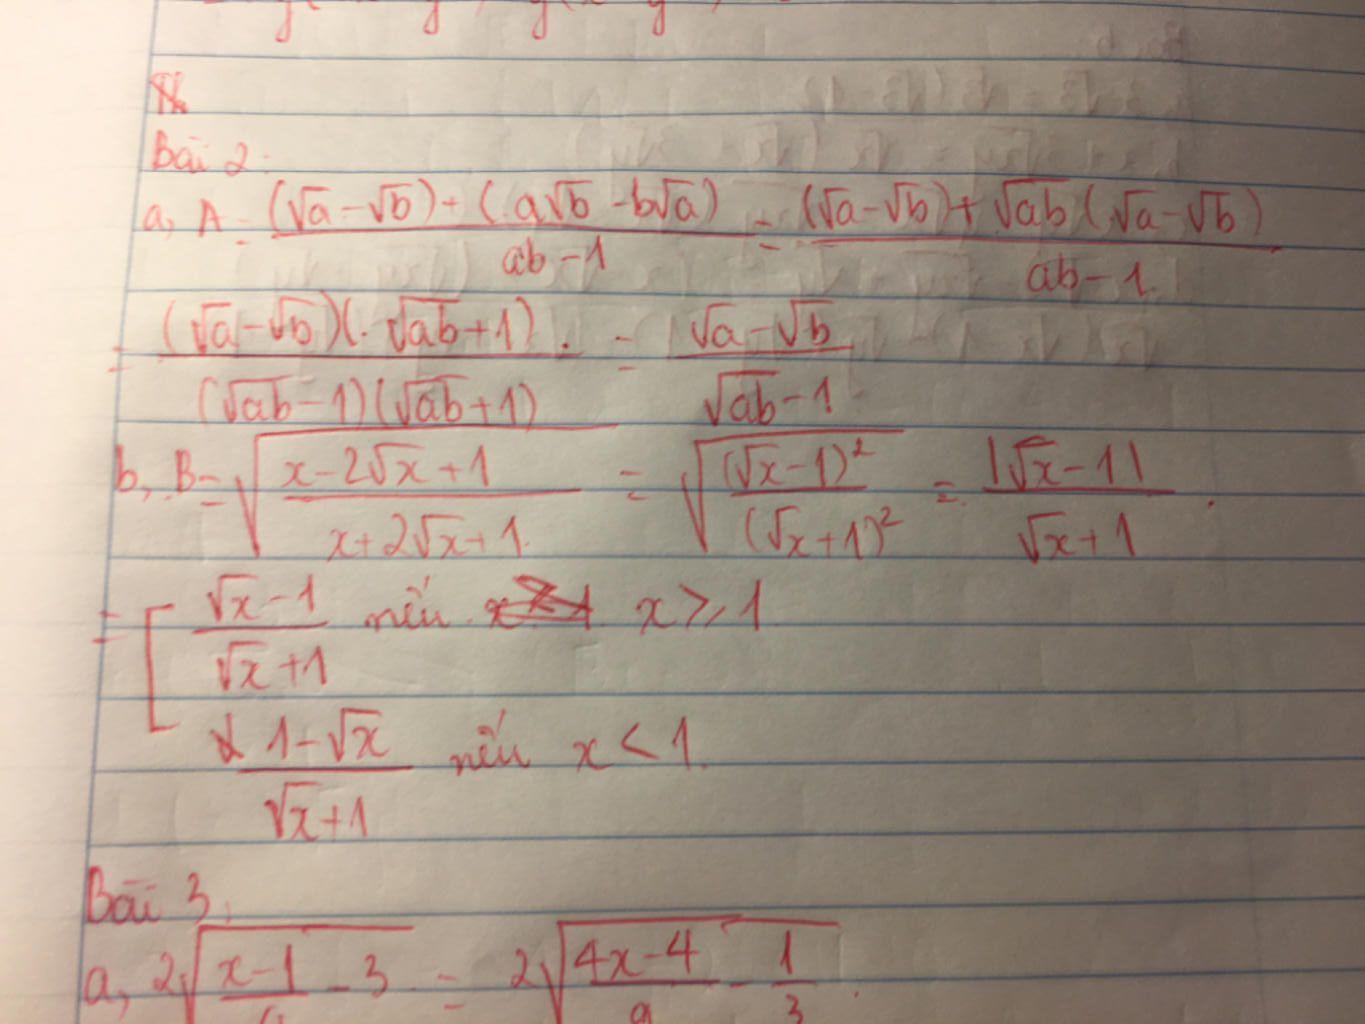 Bài 2:
a, A = ((√a - √b) + (a√b - b√a))/(ab - 1) = ((√a - √b) + √ab(√a - √b))/(ab - 1)
= ((√a - √b)(√ab + 1))/((√ab - 1)(√ab + 1)) = (√a - √b)/(√ab - 1)
b, B = √((x - 2√x + 1)/(x + 2√x + 1)) = √((√x - 1)²/(√x + 1)²) = |√x - 1|/(√x + 1).
= [ (√x - 1)/(√x + 1) nếu x ≥ 1
(1 - √x)/(√x + 1) nếu x < 1.
Bài 3,
a, 2√((x - 1)/ - 3 = 2√((4x - 4)/9 - 1/3.